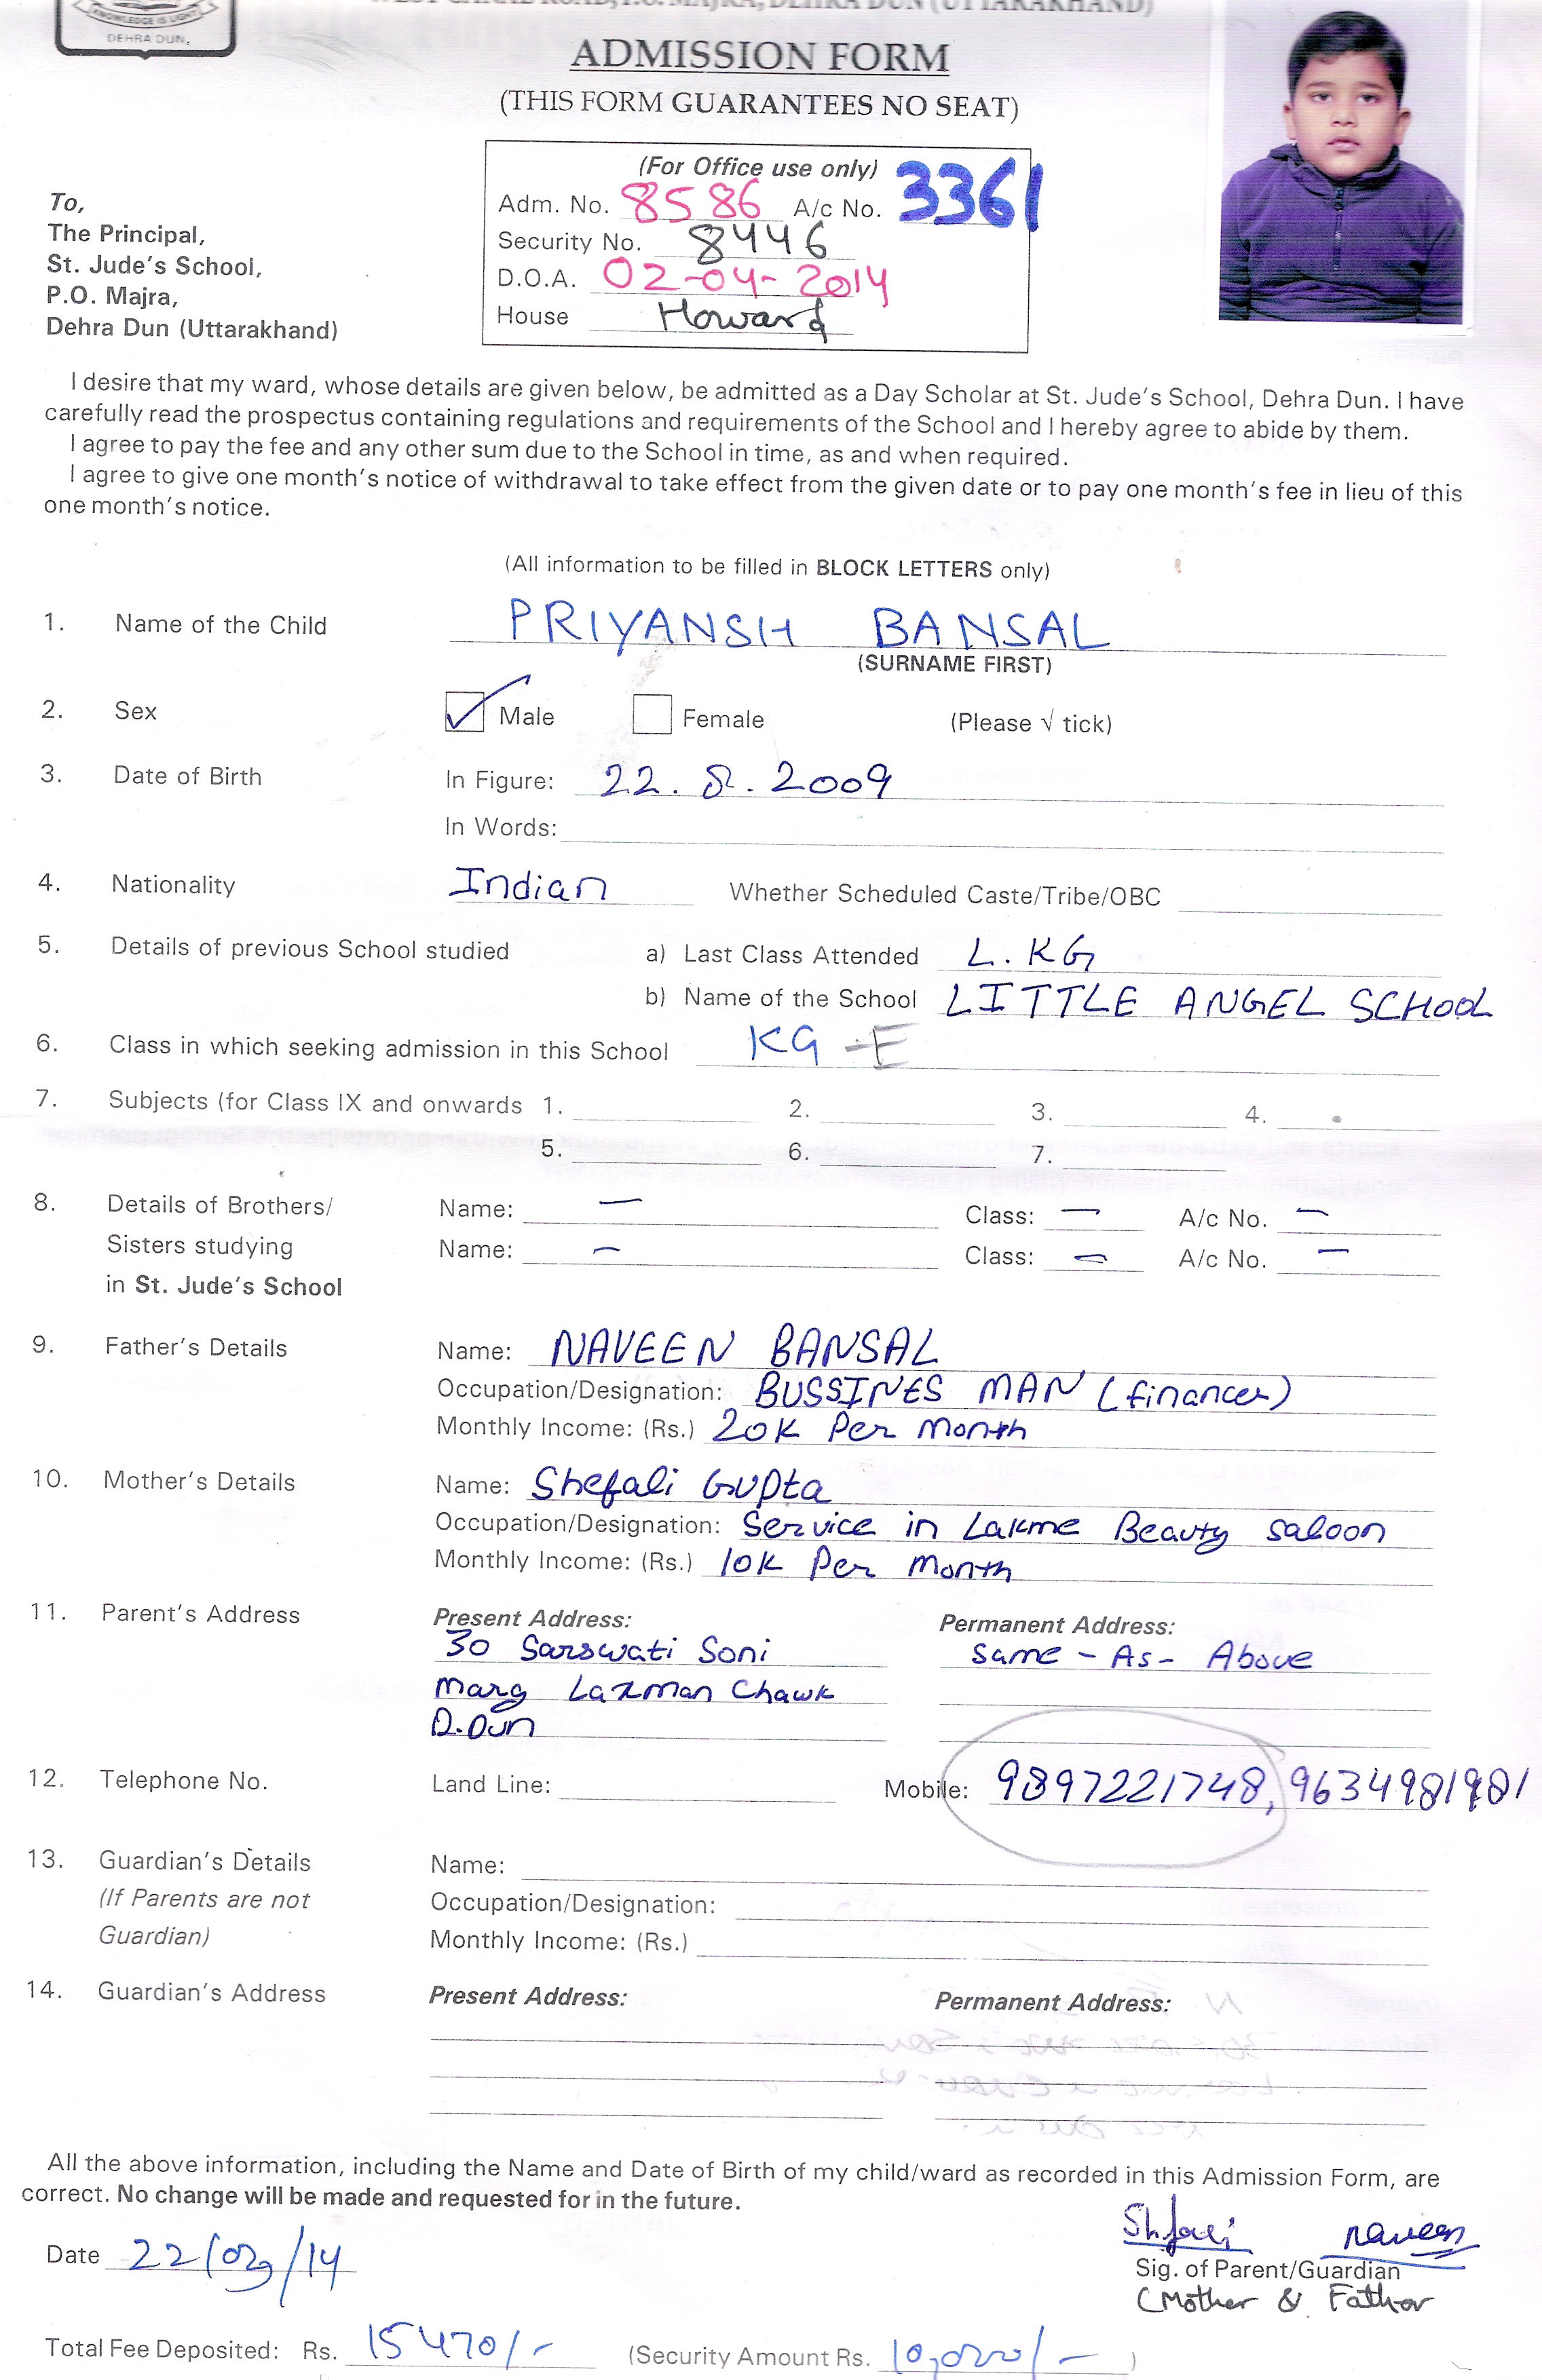 KNOWLEDGE IS LIGHT
DEHRA DUN,
WEST CANAL ROAD, P.O. MAJRA, DEHRA DUN (UTTARAKHAND)
ADMISSION FORM
(THIS FORM GUARANTEES NO SEAT)
(For Office use only)
Adm. No. 8586 A/c No. 3361
Security No. 8446
D.O.A. 02-04-2014
House Howard
To,
The Principal,
St. Jude's School,
P.O. Majra,
Dehra Dun (Uttarakhand)
I desire that my ward, whose details are given below, be admitted as a Day Scholar at St. Jude's School, Dehra Dun. I have
carefully read the prospectus containing regulations and requirements of the School and I hereby agree to abide by them.
I agree to pay the fee and any other sum due to the School in time, as and when required.
I agree to give one month's notice of withdrawal to take effect from the given date or to pay one month's fee in lieu of this
one month's notice.
(All information to be filled in BLOCK LETTERS only)
1. Name of the Child PRIYANSH BANSAL
(SURNAME FIRST)
2. Sex ✓ Male Female (Please √ tick)
3. Date of Birth In Figure: 22. 8. 2009
In Words:
4. Nationality Indian Whether Scheduled Caste/Tribe/OBC
5. Details of previous School studied a) Last Class Attended L. KG
b) Name of the School LITTLE ANGEL SCHOOL
6. Class in which seeking admission in this School KG - E
7. Subjects (for Class IX and onwards 1. 2. 3. 4.
5. 6. 7.
8. Details of Brothers/ Name: — Class: — A/c No. —
Sisters studying Name: — Class: — A/c No. —
in St. Jude's School
9. Father's Details Name: NAVEEN BANSAL
Occupation/Designation: BUSSINES MAN (financer)
Monthly Income: (Rs.) 20K Per Month
10. Mother's Details Name: Shefali Gupta
Occupation/Designation: Service in Lakme Beauty saloon
Monthly Income: (Rs.) 10K Per Month
11. Parent's Address Present Address: Permanent Address:
30 Sarswati Soni same - As - Above
Marg Laxman Chawk
D.Dun
12. Telephone No. Land Line: Mobile: 9897221748, 9634981981
13. Guardian's Details Name:
(If Parents are not Occupation/Designation:
Guardian) Monthly Income: (Rs.)
14. Guardian's Address Present Address: Permanent Address:
All the above information, including the Name and Date of Birth of my child/ward as recorded in this Admission Form, are
correct. No change will be made and requested for in the future.
Shfali naveen
Date 22/03/14
Sig. of Parent/Guardian
(Mother & Father
Total Fee Deposited: Rs. 15470/- (Security Amount Rs. 10,000/- )